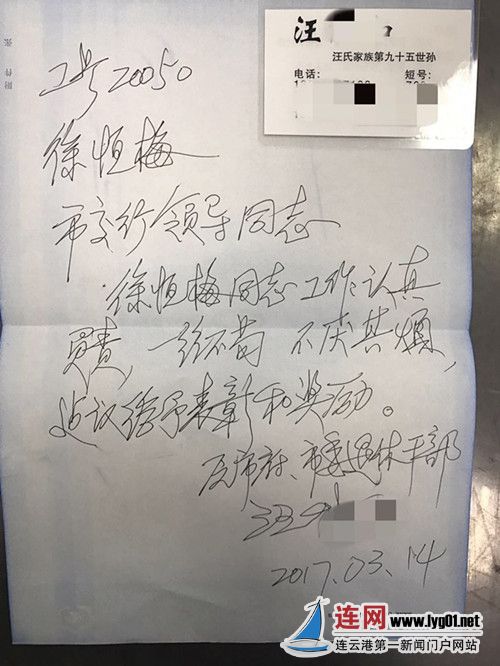 附件 张
汪
汪氏家族第九十五世孙
电话： 短号：
工号20050
徐恒梅
市交行领导同志
徐恒梅同志工作认真
负责，一丝不苟 不厌其烦，
建议给予表彰和奖励。
市府、市委退休干部
2017.03.14
连网 www.lyg01.net
连云港第一新闻门户网站